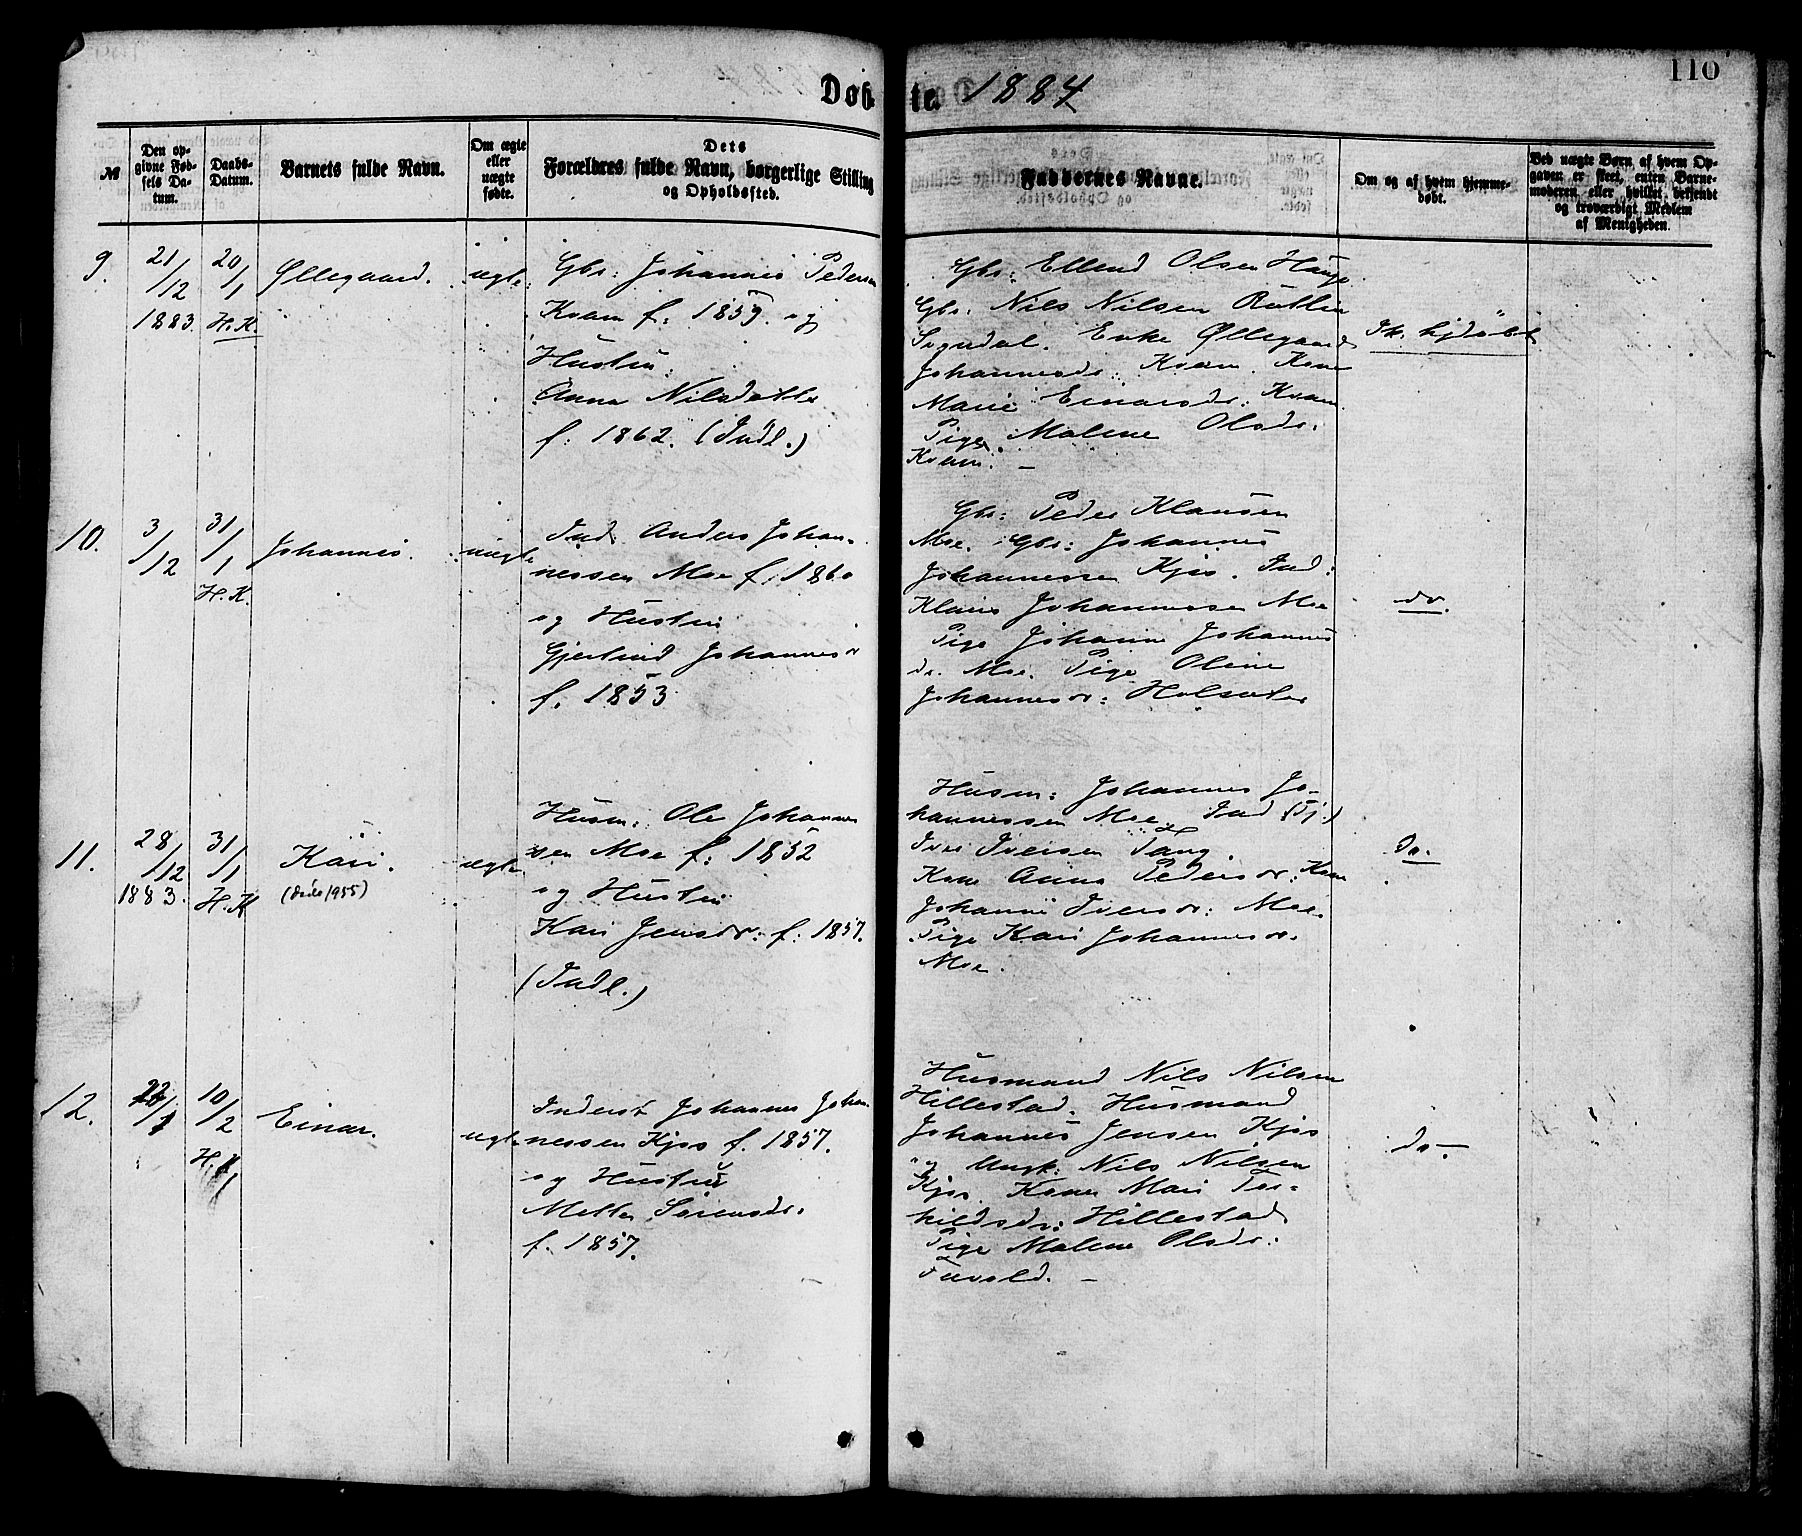 110
Døbte. 1884
№
Den opgivne Fødsels Datum.
Daabs-Datum.
Barnets fulde Navn.
Om ægte eller uægte fødte.
Dets Forældres fulde Navn, borgerlige Stilling og Opholdssted.
Faddernes Navne.
Om og af hvem hjemmedøbt.
Ved uægte Børn, af hvem Opgaven er skeet, enten Barnemoderen eller hvilket bekjendt og troværdigt Medlem af Menigheden.
9.
21/12
1883.
20/1
H. K.
Øllegaard.
ægte
Gbr: Johannes Pedersen
Kvam f. 1859. og
Hustru
Anna Nilsdatter
f: 1862. (Indl.)
Gbr: Ellend Olsen Hauge
Gbr: Nils Nilsen
Sogndal. Enke Øllegaard
Johannesdr. Kvam. Kone
Marie Einarsdr: Kvam.
Pige Malene Olsdr.
Kvam. –
Ik. hjdøbt
10.
3/12
31/1
H. K.
Johannes.
uægte
Ind. Anders Johan-
nessen Moe f. 1860
og Hustru
Gjertrud Johannesdr
f. 1853
Gbr: Peder Klausen
Moe. Gbr: Johannes
Johannessen Kjos. Ind:
Klaus Johannessen Moe
Pige Johanne Johannes
dr. Moe. Pige Oline
Johannesdr: Holsæter
do.
11.
28/12
1883.
31/1
H. K
Kari.
(Død 1955)
ægte
Husm: Ole Johannes
sen Moe f: 1852
og Hustru
Kari Jensdr: f: 1857.
(Indl.)
Husm: Johannes Jo-
hannessen Moe. Ind (Tj.)
Iver Iversen Tang.
Kone Anna Pedersdr: Kone
Johanne Iversdr: Moe.
Pige Kari Johannesdr.
Moe.
Do.
12.
22/1
10/2
H. K
Einar.
ægte
Inderst Johannes Johan-
nessen Kjos f. 1857.
og Hustru
Mette Sørensdr.
f. 1857.
Husmand Nils Nilsen
Hillestad. Husmand
Johannes Jensen Kjos
og Ungk: Nils Nilsen
Kjos. Kone Mari Tor-
kildsdr: Hillestad
Pige Malene Olsdr:
Do. –